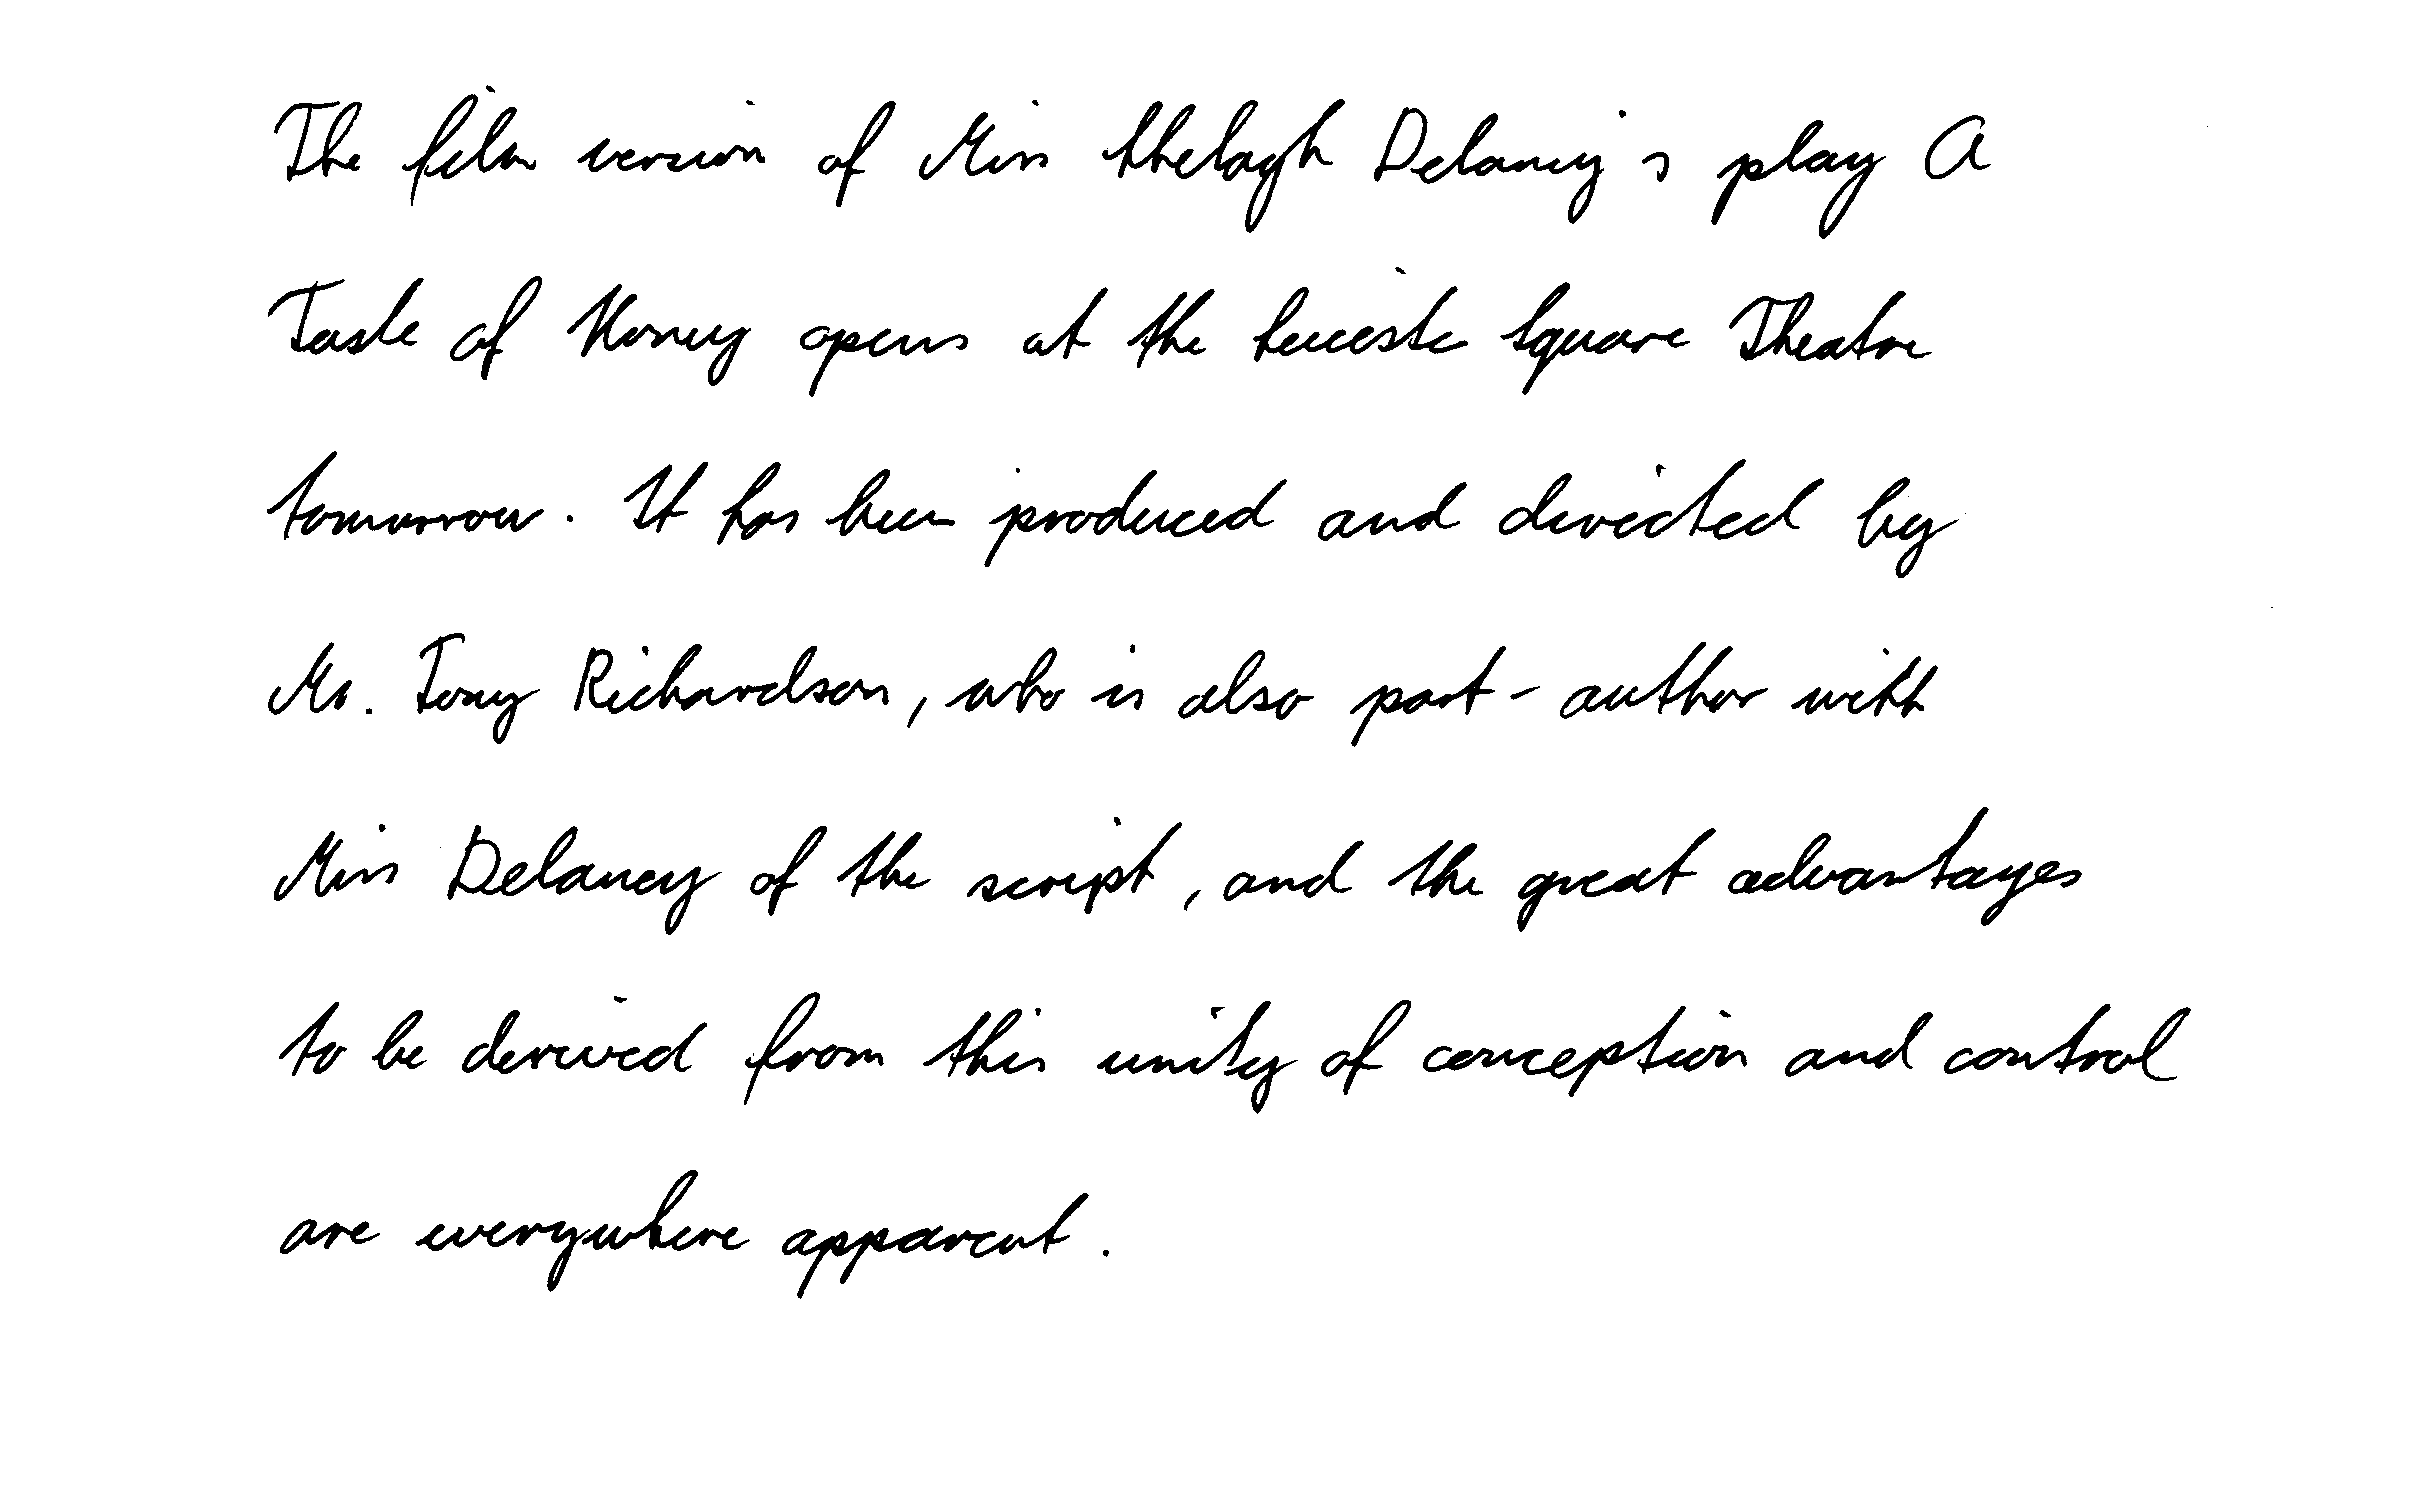 The film version of Miss Shelagh Delaney's play A
Taste of Honey opens at the Leiceste Square Theatre
tomorrow. It has been produced and directed by
Mr. Tony Richardson, who is also part-author with
Miss Delaney of the script, and the great advantages
to be derived from this unity of conception and control
are everywhere apparent.